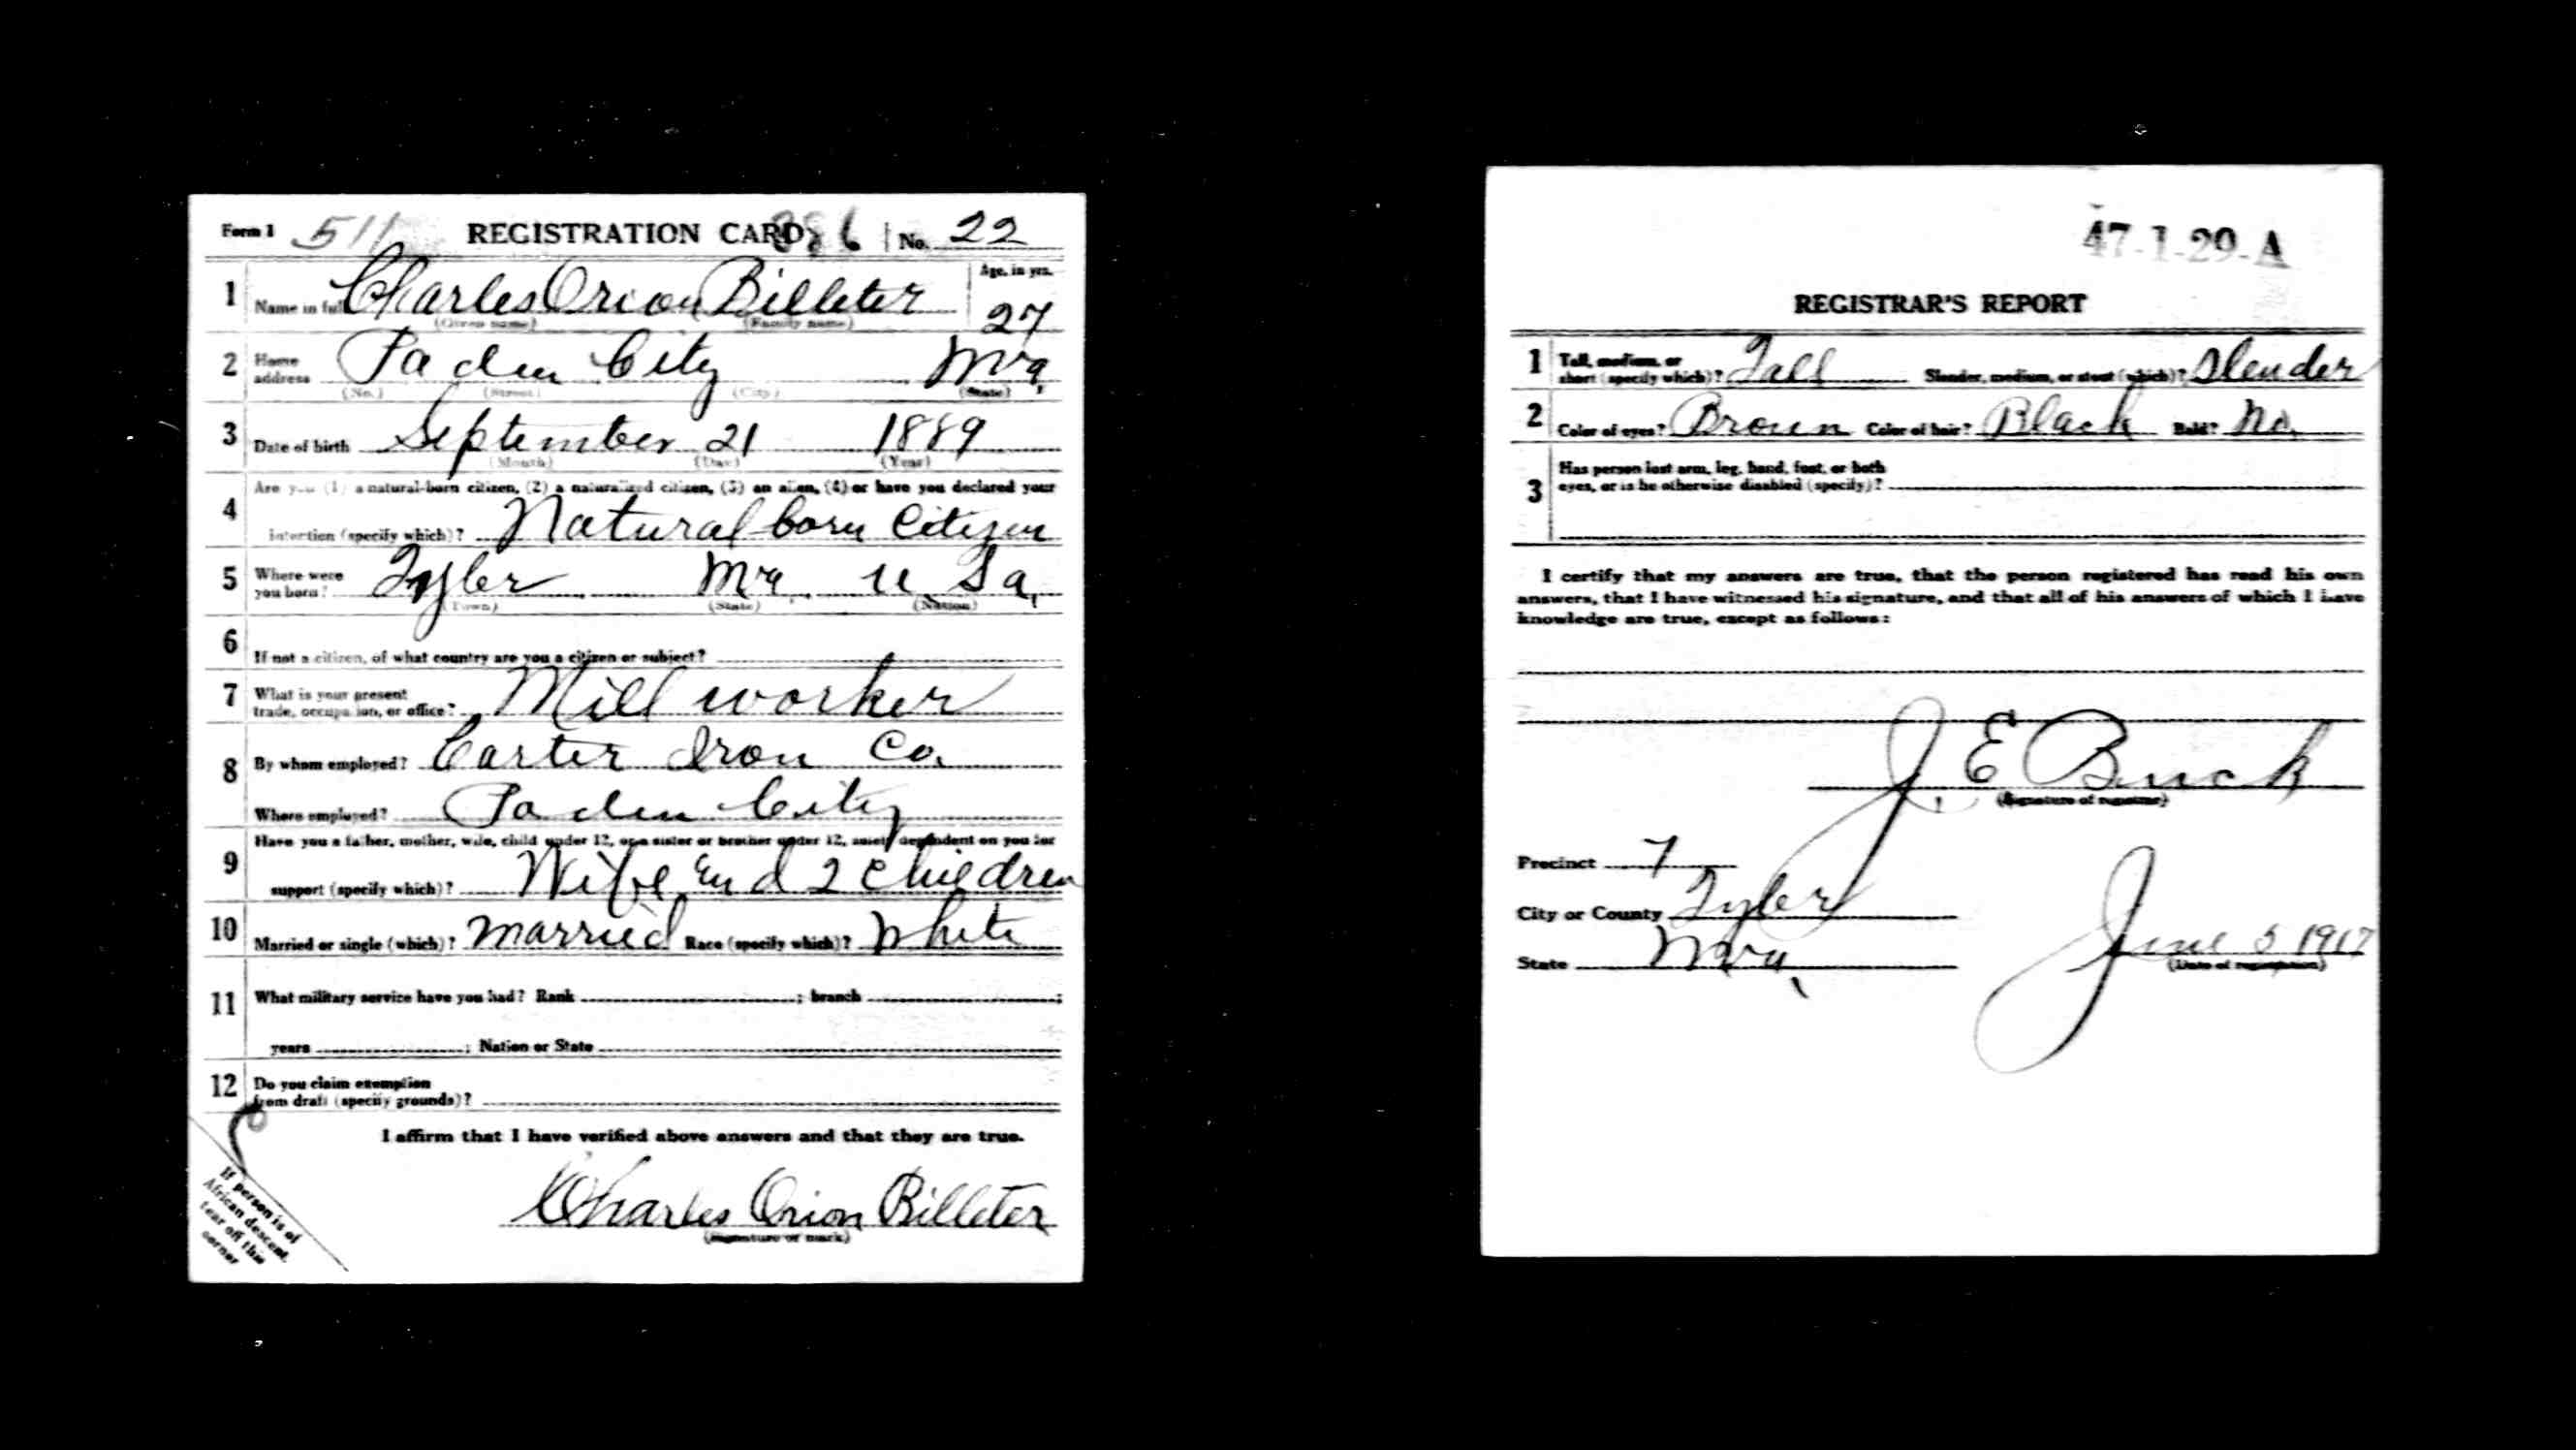 Form 1 511 REGISTRATION CARD 386 No. 22
1 Name in full Charles Orion Billeter Age, in yrs. 27
(Given name) (Family name)
2 Home address Paden City Wva
(No.) (Street) (City) (State)
3 Date of birth September 21 1889
(Month) (Day) (Year)
4 Are you (1) a natural-born citizen, (2) a naturalized citizen, (3) an alien, (4) or have you declared your
intention (specify which)? Natural born Citizen
5 Where were you born? Tyler Wva U.Sa.
(Town) (State) (Nation)
6 If not a citizen, of what country are you a citizen or subject?
7 What is your present trade, occupation, or office? Mill worker
8 By whom employed? Carter Iron Co.
Where employed? Paden City
9 Have you a father, mother, wife, child under 12, or a sister or brother under 12, solely dependent on you for
support (specify which)? Wife and 2 Children
10 Married or single (which)? Married Race (specify which)? White
11 What military service have you had? Rank ; branch ;
years ; Nation or State
12 Do you claim exemption
from draft (specify grounds)?
I affirm that I have verified above answers and that they are true.
Charles Orion Billeter
(Signature or mark)
If person is of
African descent,
tear off this
corner
47-1-29-A
REGISTRAR'S REPORT
1 Tall, medium, or short (specify which)? Tall Slender, medium, or stout (which)? Slender
2 Color of eyes? Broun Color of hair? Black Bald? No.
3 Has person lost arm, leg, hand, foot, or both
eyes, or is he otherwise disabled (specify)?
I certify that my answers are true, that the person registered has read his own
answers, that I have witnessed his signature, and that all of his answers of which I have
knowledge are true, except as follows:
J. E. Buck
(Signature of registrar)
Precinct 7
City or County Tyler
State Wva. June 5 1917
(Date of registration)